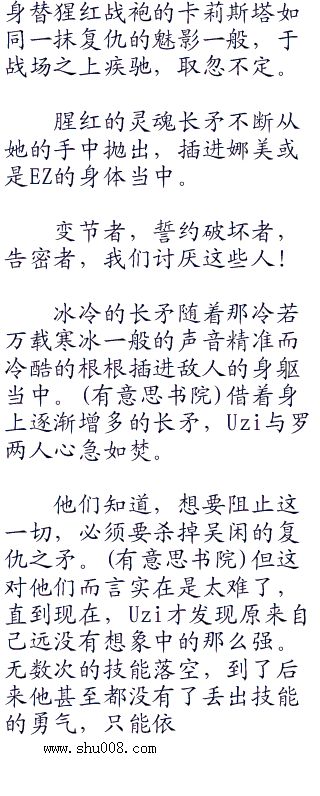 身替猩红战袍的卡莉斯塔如
同一抹复仇的魅影一般，于
战场之上疾驰，取忽不定。
腥红的灵魂长矛不断从
她的手中抛出，插进娜美或
是EZ的身体当中。
变节者，誓约破坏者，
告密者，我们讨厌这些人！
冰冷的长矛随着那冷若
万载寒冰一般的声音精准而
冷酷的根根插进敌人的身躯
当中。(有意思书院)借着身
上逐渐增多的长矛，Uzi与罗
两人心急如焚。
他们知道，想要阻止这
一切，必须要杀掉吴闲的复
仇之矛。(有意思书院)但这
对他们而言实在是太难了，
直到现在，Uzi才发现原来自
己远没有想象中的那么强。
无数次的技能落空，到了后
来他甚至都没有了丢出技能
的勇气，只能依
www.shu008.com